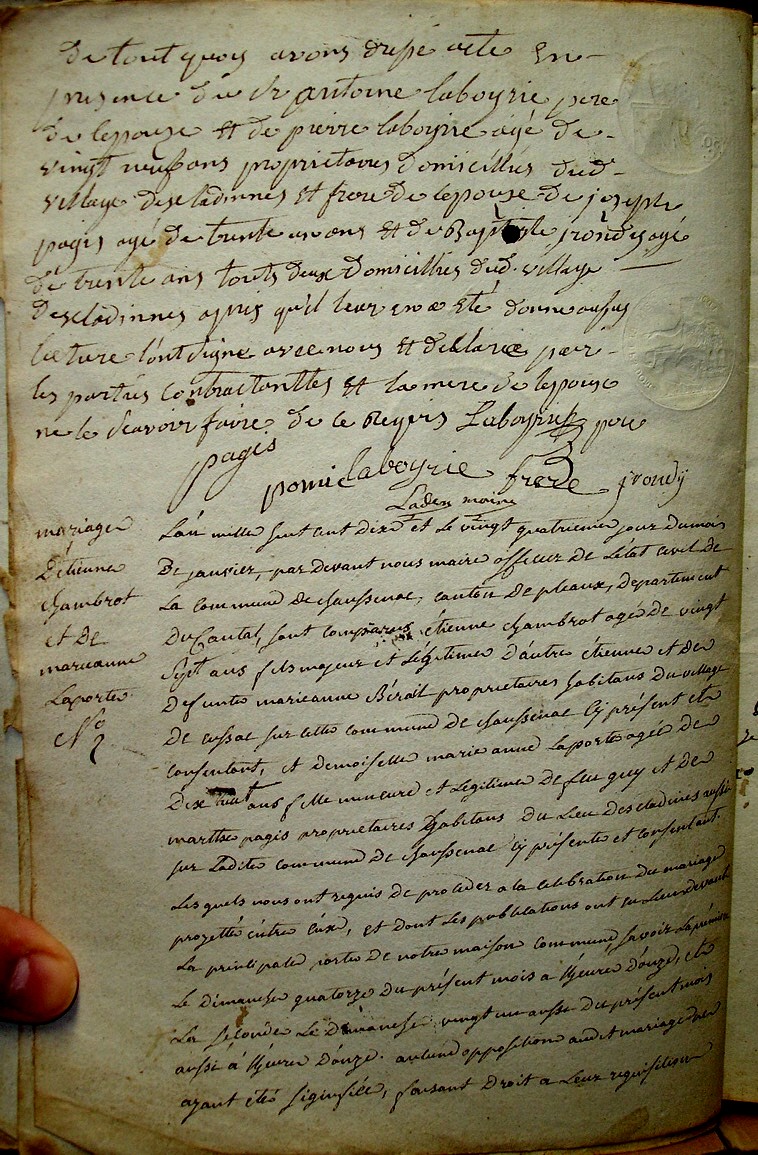 de tout quoy avons drepé acte En
presence du sr antoine laboyrie pere
de lepouze et de pierre laboyrie agé de
vingt neuf ans proprietaires domicilliés dud
village descladinnes et frere de lepouze de joseph
pagis agé de trente ans et de Baptiste jrondy agé
de trente ans touts deux domicilliés dud. village
descladinnes apris qu'il leur en a eté donne aussy
lecture l'ont signe avec nous et declaré par
les parties contractantles et la mere de lepouze
ne le scavoir faire de ce Requis Laboyrie pere
pagis
laboyrie frere jrondy
mariage
d'etienne
chambrot
et de
marieanne
Laporte
No 2
L'an mille huit cent dixe et le vingt quatrieme jour du mois
De janvier, par devant nous maire officier de L'état civil de
La commune de chaussenac, canton de pleaux, departement
Du Cantal, sont comparus étienne chambrot agé de vingt
Sept ans fils majeur et Légitime d'autre étienne et de
defunte marieanne proprietaires habitans du village
de cussac sur cette commune de chaussenac Cy présent et
consentant, et demoiselle marie anne Laporte agée de
Dix huit ans fille mineure et Legitime de feu guy et de
marthe pagis proprietaires habitans du Lieu descladines aussi
sur Ladite commune de chaussenac Cy présente et consentant.
Les quels nous ont requis de proceder a la célébration du mariage
projetté entre éux, et dont Les publications ont eu Lieu devant
La principale porte de notre maison commune, savoir La premiere
Le dimanche quatorze du présent mois a l'heure d'onze, et
La seconde Le Dimanche vingt un aussi du présent mois
aussi à l'heure d'onze. aucune opposition audit mariage ne
ayant étés signifiée, faisant Droit a Leur requisition